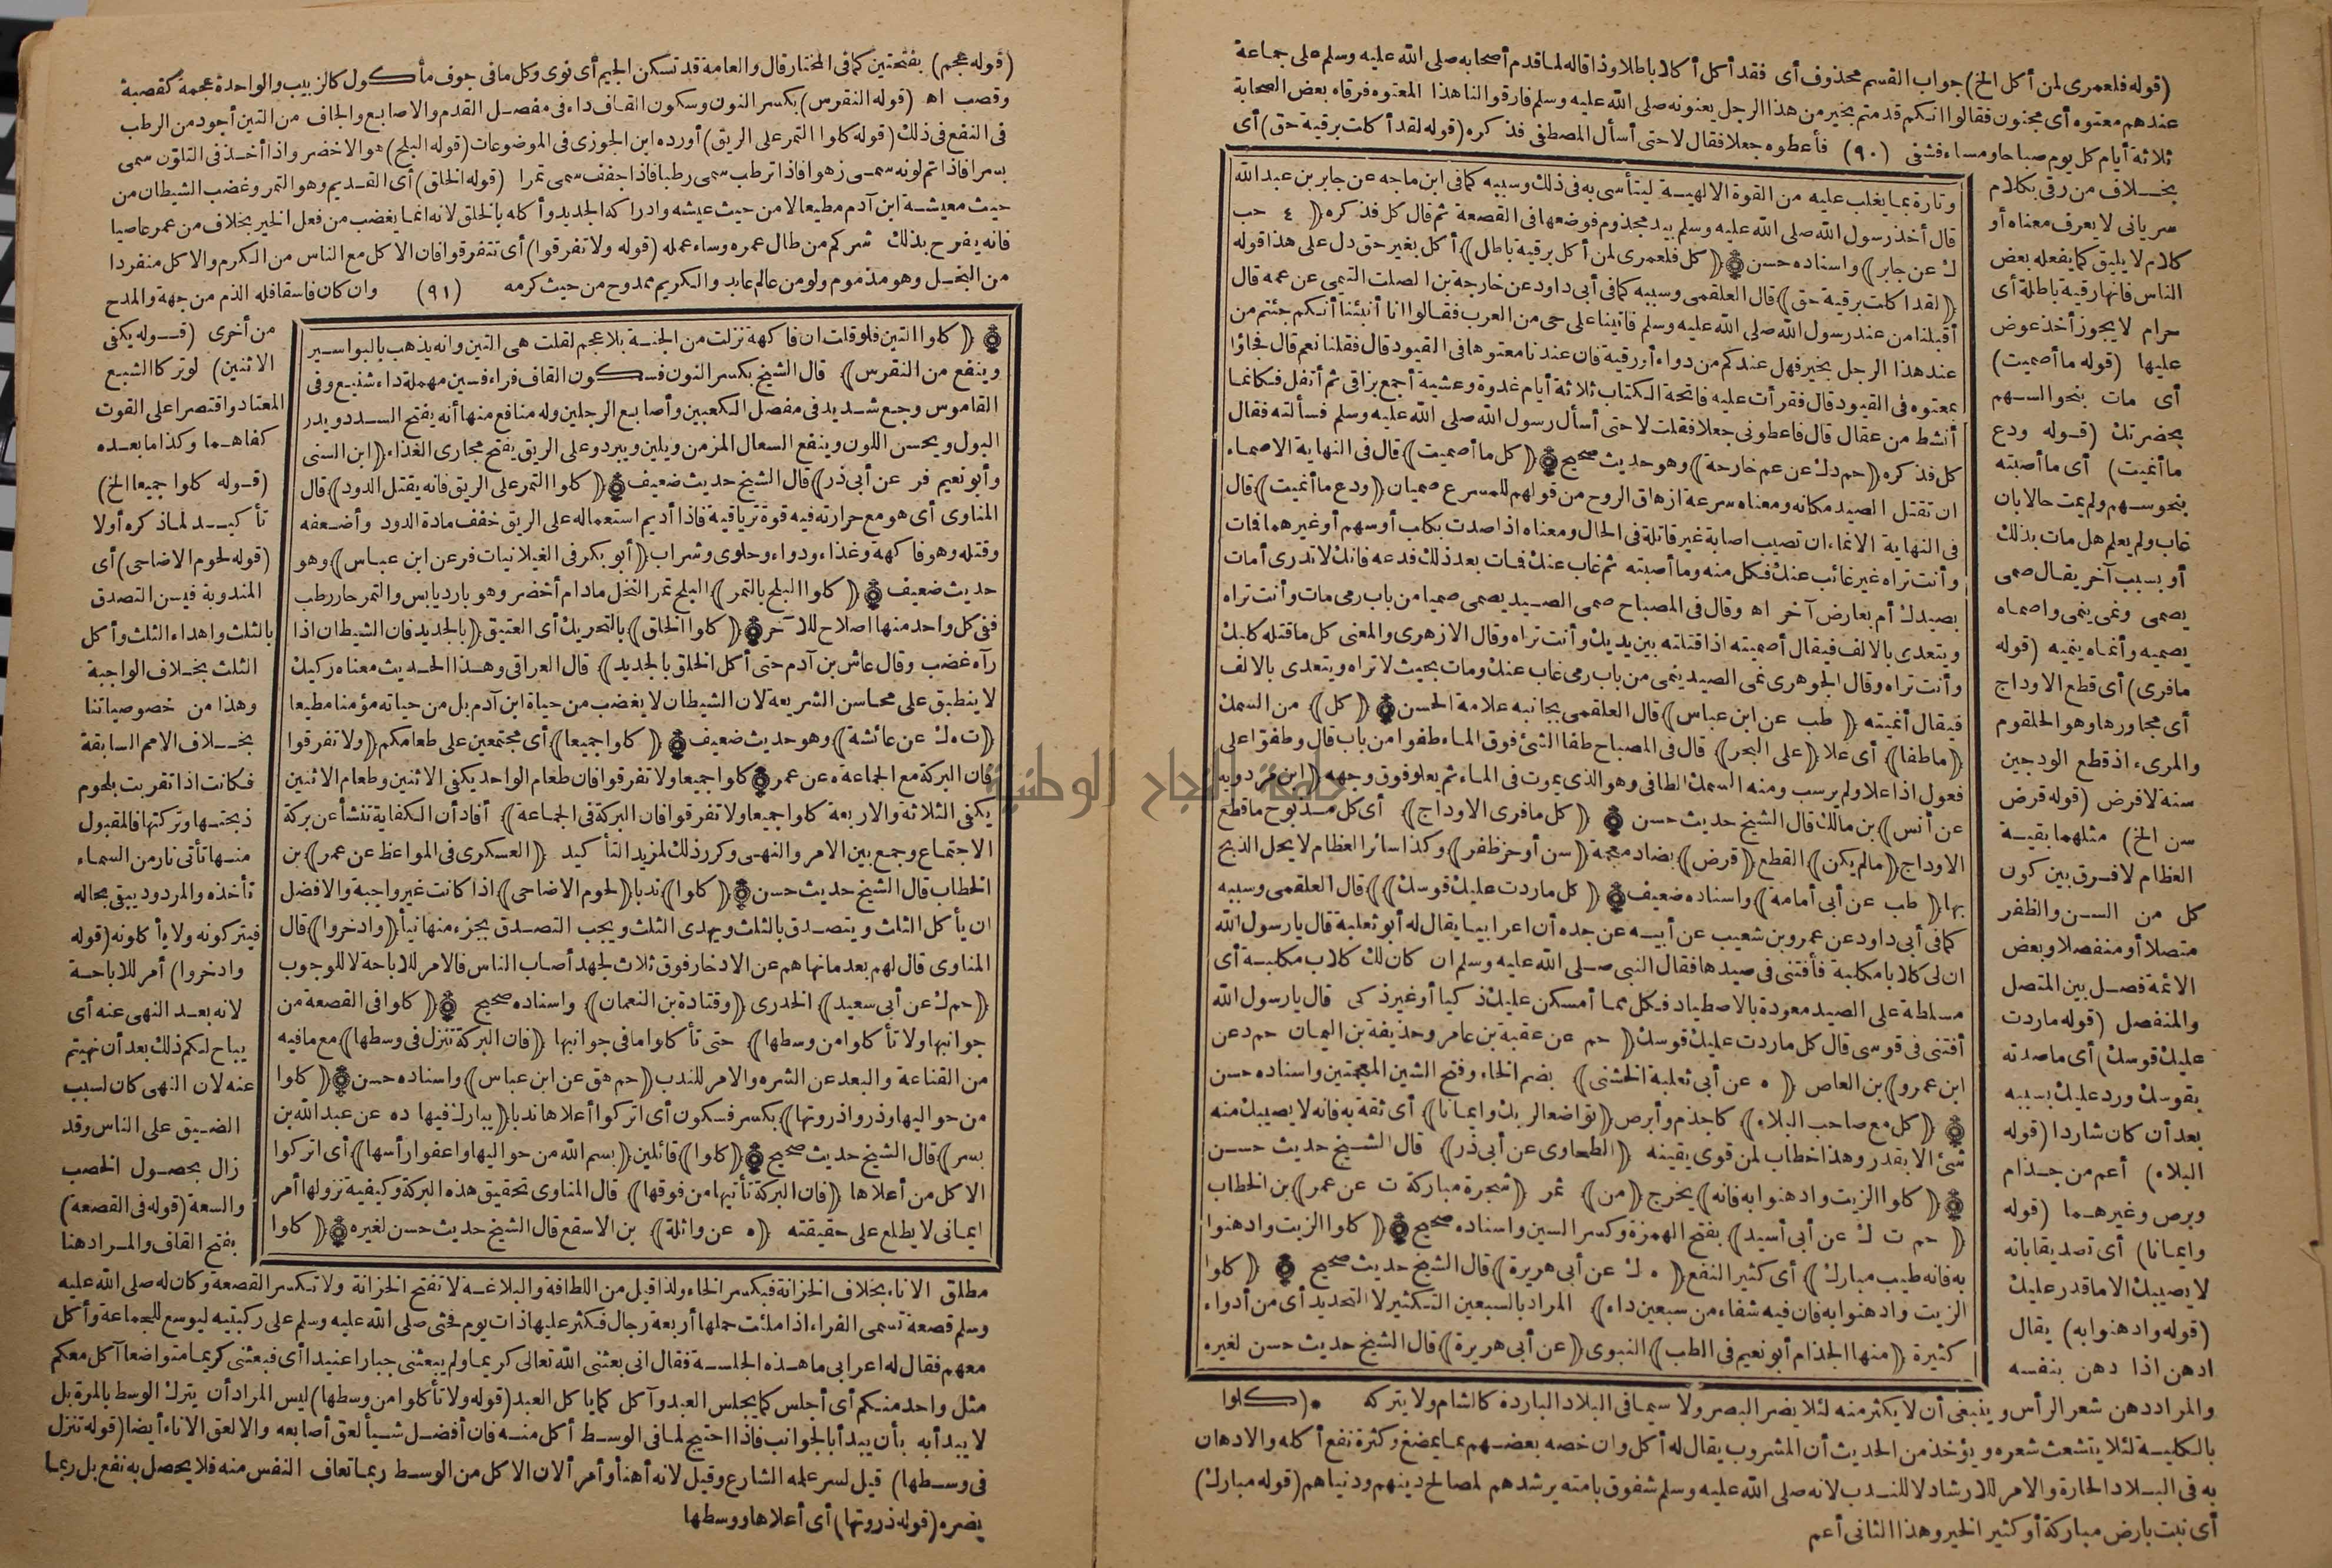 (قوله فلعمرى لمن أكل الخ) جواب القسم محذوف أى فقد أكل أكلا باطلا وذا قاله لما قدم أصحابه صلى الله عليه وسلم على جماعة
عندهم معتوه أى مجنون فقالوا انكم قدمتم بخير من هذا الرجل يعنونه صلى الله عليه وسلم فارقوا لنا هذا المعتوه فرقاه بعض الصحابة
ثلاثة أيام كل يوم صباحا ومساء فشفى (٩٠) فأعطوه جعلا فقال لا حتى أسأل المصطفى فذكره (قوله لقد أكلت برقية حق) أى
بخلاف من رقى بكلام
سريانى لا يعرف معناه أو
كلام لا يليق كما يفعله بعض
الناس فانها رقية باطلة أى
حرام لا يجوز أخذ عوض
عليها (قوله ما أصميت)
أى مات بنحو السهم
بحضرتك (قوله ودع
ما أنميت) أى ما أصبته
بنحو سهم ولم يمت حالا بان
غاب ولم يعلم هل مات بذلك
أو بسبب آخر يقال صمى
يصمى ونمى ينمى واصماه
يصميه وأنماه ينميه (قوله
مافرى) أى قطع الاوداج
أى مجاورها وهو الحلقوم
والمرىء اذ قطع الودجين
سنة لا فرض (قوله قرض
سن الخ) مثلهما بقية
العظام لا فرق بين كون
كل من السن والظفر
متصلا أو منفصلا وبعض
الائمة فصل بين المتصل
والمنفصل (قوله ماردت
عليك قوسك) أى ما صدته
بقوسك ورد عليك بسببه
بعد أن كان شاردا (قوله
البلاء) أعم من جذام
وبرص وغيرهما (قوله
وايمانا) أى تصديقا بانه
لا يصيبك الا ما قدر عليك
(قوله وادهنوا به) يقال
ادهن اذا دهن بنفسه
وتارة بما يغلب عليه من القوة الالهية ليتأسى به فى ذلك وسببه كما فى ابن ماجه عن جابر بن عبد الله
قال أخذ رسول الله صلى الله عليه وسلم بيد مجذوم فوضعها فى القصعة ثم قال كل فذكره ﴿ ٤ حب
ك عن جابر﴾ واسناده حسن ﴿كل فلعمرى لمن أكل برقية باطل﴾ أكل بغير حق دل على هذا قوله
﴿لقد أكلت برقية حق﴾ قال العلقمى وسببه كما فى أبى داود عن خارجة بن الصلت التيمى عن عمه قال
أقبلنا من عند رسول الله صلى الله عليه وسلم فاتينا على حى من العرب فقالوا انا أنبئنا أنكم جئتم من
عند هذا الرجل بخير فهل عندكم من دواء أو رقية فان عندنا معتوها فى القيود قال فقلنا نعم قال فجاؤا
بمعتوه فى القيود قال فقرأت عليه فاتحة الكتاب ثلاثة أيام غدوة وعشية أجمع بزاقى ثم أتفل فكانما
أنشط من عقال قال فاعطونى جعلا فقلت لا حتى أسأل رسول الله صلى الله عليه وسلم فسألته فقال
كل فذكره ﴿حم د ك عن عم خارجة﴾ وهو حديث صحيح ﴿كل ما أصميت﴾ قال فى النهاية الاصماء
ان تقتل الصيد مكانه ومعناه سرعة ازهاق الروح من قولهم للمسرع صميان ﴿ودع ما أنميت﴾ قال
فى النهاية الانماء ان تصيب اصابة غير قاتلة فى الحال ومعناه اذا صدت بكلب أو سهم أو غيرهما فمات
وأنت تراه غير غائب عنك فكل منه وما أصبته ثم غاب عنك فمات بعد ذلك فدعه فانك لا تدرى أمات
بصيدك أم بعارض آخر اه وقال فى المصباح صمى الصيد يصمى صميا من باب رمى مات وأنت تراه
ويتعدى بالالف فيقال أصميته اذا قتلته بين يديك وأنت تراه وقال الازهرى والمعنى كل ما قتله كلبك
وأنت تراه وقال الجوهرى نمى الصيد ينمى من باب رمى غاب عنك ومات بحيث لا تراه ويتعدى بالالف
فيقال أنميته ﴿طب عن ابن عباس﴾ قال العلقمى بجانبه علامة الحسن ﴿كل﴾ من السمك
﴿ما طفا﴾ أى علا ﴿على البحر﴾ قال فى المصباح طفا الشئ فوق الماء طفوا من باب قال وطفوا على
فعول اذا علا ولم يرسب ومنه السمك الطافى وهو الذى يموت فى الماء ثم يعلو فوق وجهه ﴿ابن مردويه
عن أنس﴾ بن مالك قال الشيخ حديث حسن ﴿كل مافرى الاوداج﴾ أى كل مذبوح ما قطع
الاوداج ﴿ما لم يكن﴾ القطع ﴿قرض﴾ بضاد معجمة ﴿سن أو حز ظفر﴾ وكذا سائر العظام لا يحل الذبح
بها ﴿طب عن أبى أمامة﴾ واسناده ضعيف ﴿كل ماردت عليك قوسك﴾ قال العلقمى وسببه
كما فى أبى داود عن عمرو بن شعيب عن أبيه عن جده أن اعرابيا يقال له أبو ثعلبة قال يا رسول الله
ان لى كلابا مكلبة فأفتنى فى صيدها فقال النبى صلى الله عليه وسلم ان كان لك كلاب مكلبة أى
مسلطة على الصيد معودة بالاصطياد فكل مما أمسكن عليك ذكيا أو غير ذكى قال يا رسول الله
أفتنى فى قوسى قال كل ماردت عليك قوسك ﴿حم عن عقبة بن عامر وحذيفة بن اليمان حم د عن
ابن عمرو﴾ بن العاص ﴿ه عن أبى ثعلبة الخشنى﴾ بضم الخاء وفتح الشين المعجمتين واسناده حسن
﴿كل مع صاحب البلاء﴾ كاجذم وأبرص ﴿تواضعا لربك وايمانا﴾ أى ثقة به فانه لا يصيبك منه
شئ الا بقدر وهذا خطاب لمن قوى يقينه ﴿الطحاوى عن أبى ذر﴾ قال الشيخ حديث حسن
﴿كلوا الزيت وادهنوا به فانه﴾ يخرج ﴿من﴾ ثمر ﴿شجرة مباركة ت عن عمر﴾ بن الخطاب
﴿حم ت ك عن أبى أسيد﴾ بفتح الهمزة وكسر السين واسناده صحيح ﴿كلوا الزيت وادهنوا
به فانه طيب مبارك﴾ أى كثير النفع ﴿ه ك عن أبى هريرة﴾ قال الشيخ حديث صحيح ﴿كلوا
الزيت وادهنوا به فان فيه شفاء من سبعين داء﴾ المراد بالسبعين التكثير لا التحديد أى من أدواء
كثيرة ﴿منها الجذام أبو نعيم فى الطب﴾ النبوى ﴿عن أبى هريرة﴾ قال الشيخ حديث حسن لغيره
والمراد دهن شعر الرأس وينبغى أن لا يكثر منه لئلا يضر البصر ولا سيما فى البلاد الباردة كالشام ولا يتركه • (كلوا
بالكلية لئلا يتشعث شعره ويؤخذ من الحديث أن المشروب يقال له أكل وان خصه بعضهم بما يمضغ وكثرة نفع أكله والادهان
به فى البلاد الحارة والامر للارشاد لا للندب لانه صلى الله عليه وسلم شفوق بامته يرشدهم لمصالح دينهم ودنياهم (قوله مبارك)
أى نبت بارض مباركة أو كثير الخير وهذا الثانى أعم
(قوله عجم) بفتحتين كما فى المختار قال والعامة قد تسكن الجيم أى نوى وكل ما فى جوف مأكول كالزبيب والواحدة عجمة كقصبة
وقصب اه (قوله النقرس) بكسر النون وسكون القاف داء فى مفصل القدم والاصابع والجاف من التين أجود من الرطب
فى النفع فى ذلك (قوله كلوا التمر على الريق) أورده ابن الجوزى فى الموضوعات (قوله البلح) هو الاخضر واذا أخذ فى التلون سمى
بسرا فاذا تم لونه سمى زهوا فاذا ترطب سمى رطبا فاذا جفف سمى تمرا (قوله الخلق) أى القديم وهو التمر وغضب الشيطان من
حيث معيشة ابن آدم مطيعا لا من حيث عيشه وادراكه الجديد وأكله بالخلق لانه انما يغضب من فعل الخير بخلاف من عمر عاصيا
فانه يفرح بذلك شركم من طال عمره وساء عمله (قوله ولا تفرقوا) أى تتفرقوا فان الاكل مع الناس من الكرم والاكل منفردا
من البخل وهو مذموم ولو من عالم عابد والكريم ممدوح من حيث كرمه (٩١) وان كان فاسقا فله الذم من جهة والمدح
من أخرى (قوله يكفى
الاثنين) لو تركا الشبع
المعتاد واقتصرا على القوت
كفاهما وكذا ما بعده
(قوله كلوا جميعا الخ)
تأكيد لما ذكره أولا
(قوله لحوم الاضاحى) أى
المندوبة فيسن التصدق
بالثلث واهداء الثلث وأكل
الثلث بخلاف الواجبة
وهذا من خصوصياتنا
بخلاف الامم السابقة
فكانت اذا تقربت بلحوم
ذبحتها وتركتها فالمقبول
منها تأتى نار من السماء
تأخذه والمردود يبقى بحاله
فيتركونه ولا يأكلونه (قوله
وادخروا) أمر للاباحة
لانه بعد النهى عنه أى
يباح لكم ذلك بعد أن نهيتم
عنه لان النهى كان لسبب
الضيق على الناس وقد
زال بحصول الخصب
والسعة (قوله فى القصعة)
بفتح القاف والمراد هنا
﴿كلوا التين فلو قلت ان فاكهة نزلت من الجنة بلا عجم لقلت هى التين وانه يذهب بالبواسير
وينفع من النقرس﴾ قال الشيخ بكسر النون فسكون القاف فراء فسين مهملة داء شنيع وفى
القاموس وجع شديد فى مفصل الكعبين وأصابع الرجلين وله منافع منها أنه يفتح السدد ويدر
البول ويحسن اللون وينفع السعال المزمن ويلين ويبرد وعلى الريق يفتح مجارى الغذاء ﴿ابن السنى
وأبو نعيم فر عن أبى ذر﴾ قال الشيخ حديث ضعيف ﴿كلوا التمر على الريق فانه يقتل الدود﴾ قال
المناوى أى هو مع حرارته فيه قوة ترياقية فاذا أديم استعماله على الريق خفف مادة الدود وأضعفه
وقتله وهو فاكهة وغذاء ودواء وحلوى وشراب ﴿أبو بكر فى الغيلانيات فر عن ابن عباس﴾ وهو
حديث ضعيف ﴿كلوا البلح بالتمر﴾ البلح تمر النخل ما دام أخضر وهو بارد يابس والتمر حار رطب
ففى كل واحد منها اصلاح للآخر ﴿كلوا الخلق﴾ بالتحريك أى العتيق ﴿بالجديد فان الشيطان اذا
رآه غضب وقال عاش بن آدم حتى أكل الخلق بالجديد﴾ قال العراقى وهذا الحديث معناه ركيك
لا ينطبق على محاسن الشريعة لان الشيطان لا يغضب من حياة ابن آدم بل من حياته مؤمنا مطيعا
﴿ت ه ك عن عائشة﴾ وهو حديث ضعيف ﴿كلوا جميعا﴾ أى مجتمعين على طعامكم ﴿ولا تفرقوا
فان البركة مع الجماعة ه عن عمر كلوا جميعا ولا تفرقوا فان طعام الواحد يكفى الاثنين وطعام الاثنين
يكفى الثلاثة والاربعة كلوا جميعا ولا تفرقوا فان البركة فى الجماعة﴾ أفاد أن الكفاية تنشأ عن بركة
الاجتماع وجمع بين الامر والنهى وكرر ذلك لمزيد التأكيد ﴿العسكرى فى المواعظ عن عمر﴾ بن
الخطاب قال الشيخ حديث حسن ﴿كلوا﴾ ندبا ﴿لحوم الاضاحى﴾ اذا كانت غير واجبة والافضل
ان يأكل الثلث ويتصدق بالثلث ويهدى الثلث ويجب التصدق بجزء منها نيأ ﴿وادخروا﴾ قال
المناوى قال لهم بعد ما نهاهم عن الادخار فوق ثلاث لجهد أصاب الناس فالامر للاباحة لا للوجوب
﴿حم ك عن أبى سعيد﴾ الخدرى ﴿وقتادة بن النعمان﴾ واسناده صحيح ﴿كلوا فى القصعة من
جوانبها ولا تأكلوا من وسطها﴾ حتى تأكلوا ما فى جوانبها ﴿فان البركة تنزل فى وسطها﴾ مع ما فيه
من القناعة والبعد عن الشره والامر للندب ﴿حم هق عن ابن عباس﴾ واسناده حسن ﴿كلوا
من حواليها وذروا ذروتها﴾ بكسر فسكون أى اتركوا أعلاها ندبا ﴿يبارك فيها د ه عن عبد الله بن
بسر﴾ قال الشيخ حديث صحيح ﴿كلوا﴾ قائلين ﴿بسم الله من حواليها واعفوا رأسها﴾ أى اتركوا
الاكل من أعلاها ﴿فان البركة تأتيها من فوقها﴾ قال المناوى تحقيق هذه البركة وكيفية نزولها أمر
ايمانى لا يطلع على حقيقته ﴿ه عن واثلة﴾ بن الاسقع قال الشيخ حديث حسن لغيره ﴿كلوا
مطلق الاناء بخلاف الخزانة فبكسر الخاء ولذا قيل من اللطافة والبلاغة لا تفتح الخزانة ولا تكسر القصعة وكان له صلى الله عليه
وسلم قصعة تسمى الغراء اذا ملئت حملها أربعة رجال فكثر عليها ذات يوم فجثى صلى الله عليه وسلم على ركبتيه ليوسع للجماعة وأكل
معهم فقال له اعرابى ما هذه الجلسة فقال انى بعثنى الله تعالى كريما ولم يبعثنى جبارا عنيدا أى فبعثنى كريما متواضعا آكل معكم
مثل واحد منكم أى أجلس كما يجلس العبد وآكل كما يأكل العبد (قوله ولا تأكلوا من وسطها) ليس المراد أن يترك الوسط بالمرة بل
لا يبدأ به بأن يبدأ بالجوانب فاذا احتيج لما فى الوسط أكل منه فان أفضل شيأ لعق أصابعه والا لعق الاناء أيضا (قوله تنزل
فى وسطها) قيل لسر علمه الشارع وقيل لانه أهنأ وأمرأ لان الاكل من الوسط ربما تعاف النفس منه فلا يحصل به نفع بل ربما
يضره (قوله ذروتها) أى أعلاها ووسطها
جامعة النجاح الوطنية